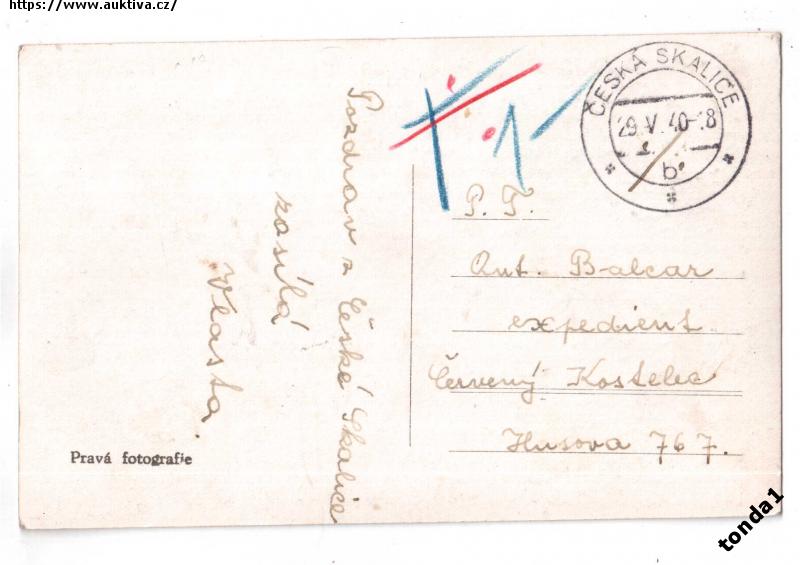 https://www.auktiva.cz/
Pozdrav z České Skalice
zasílá
Vlasta.
Pravá fotografie
ČESKÁ SKALICE
29.V.40-18
b
P. T.
Ant. Balcar
expedient
Červený Kostelec
Husova 767.
tonda1